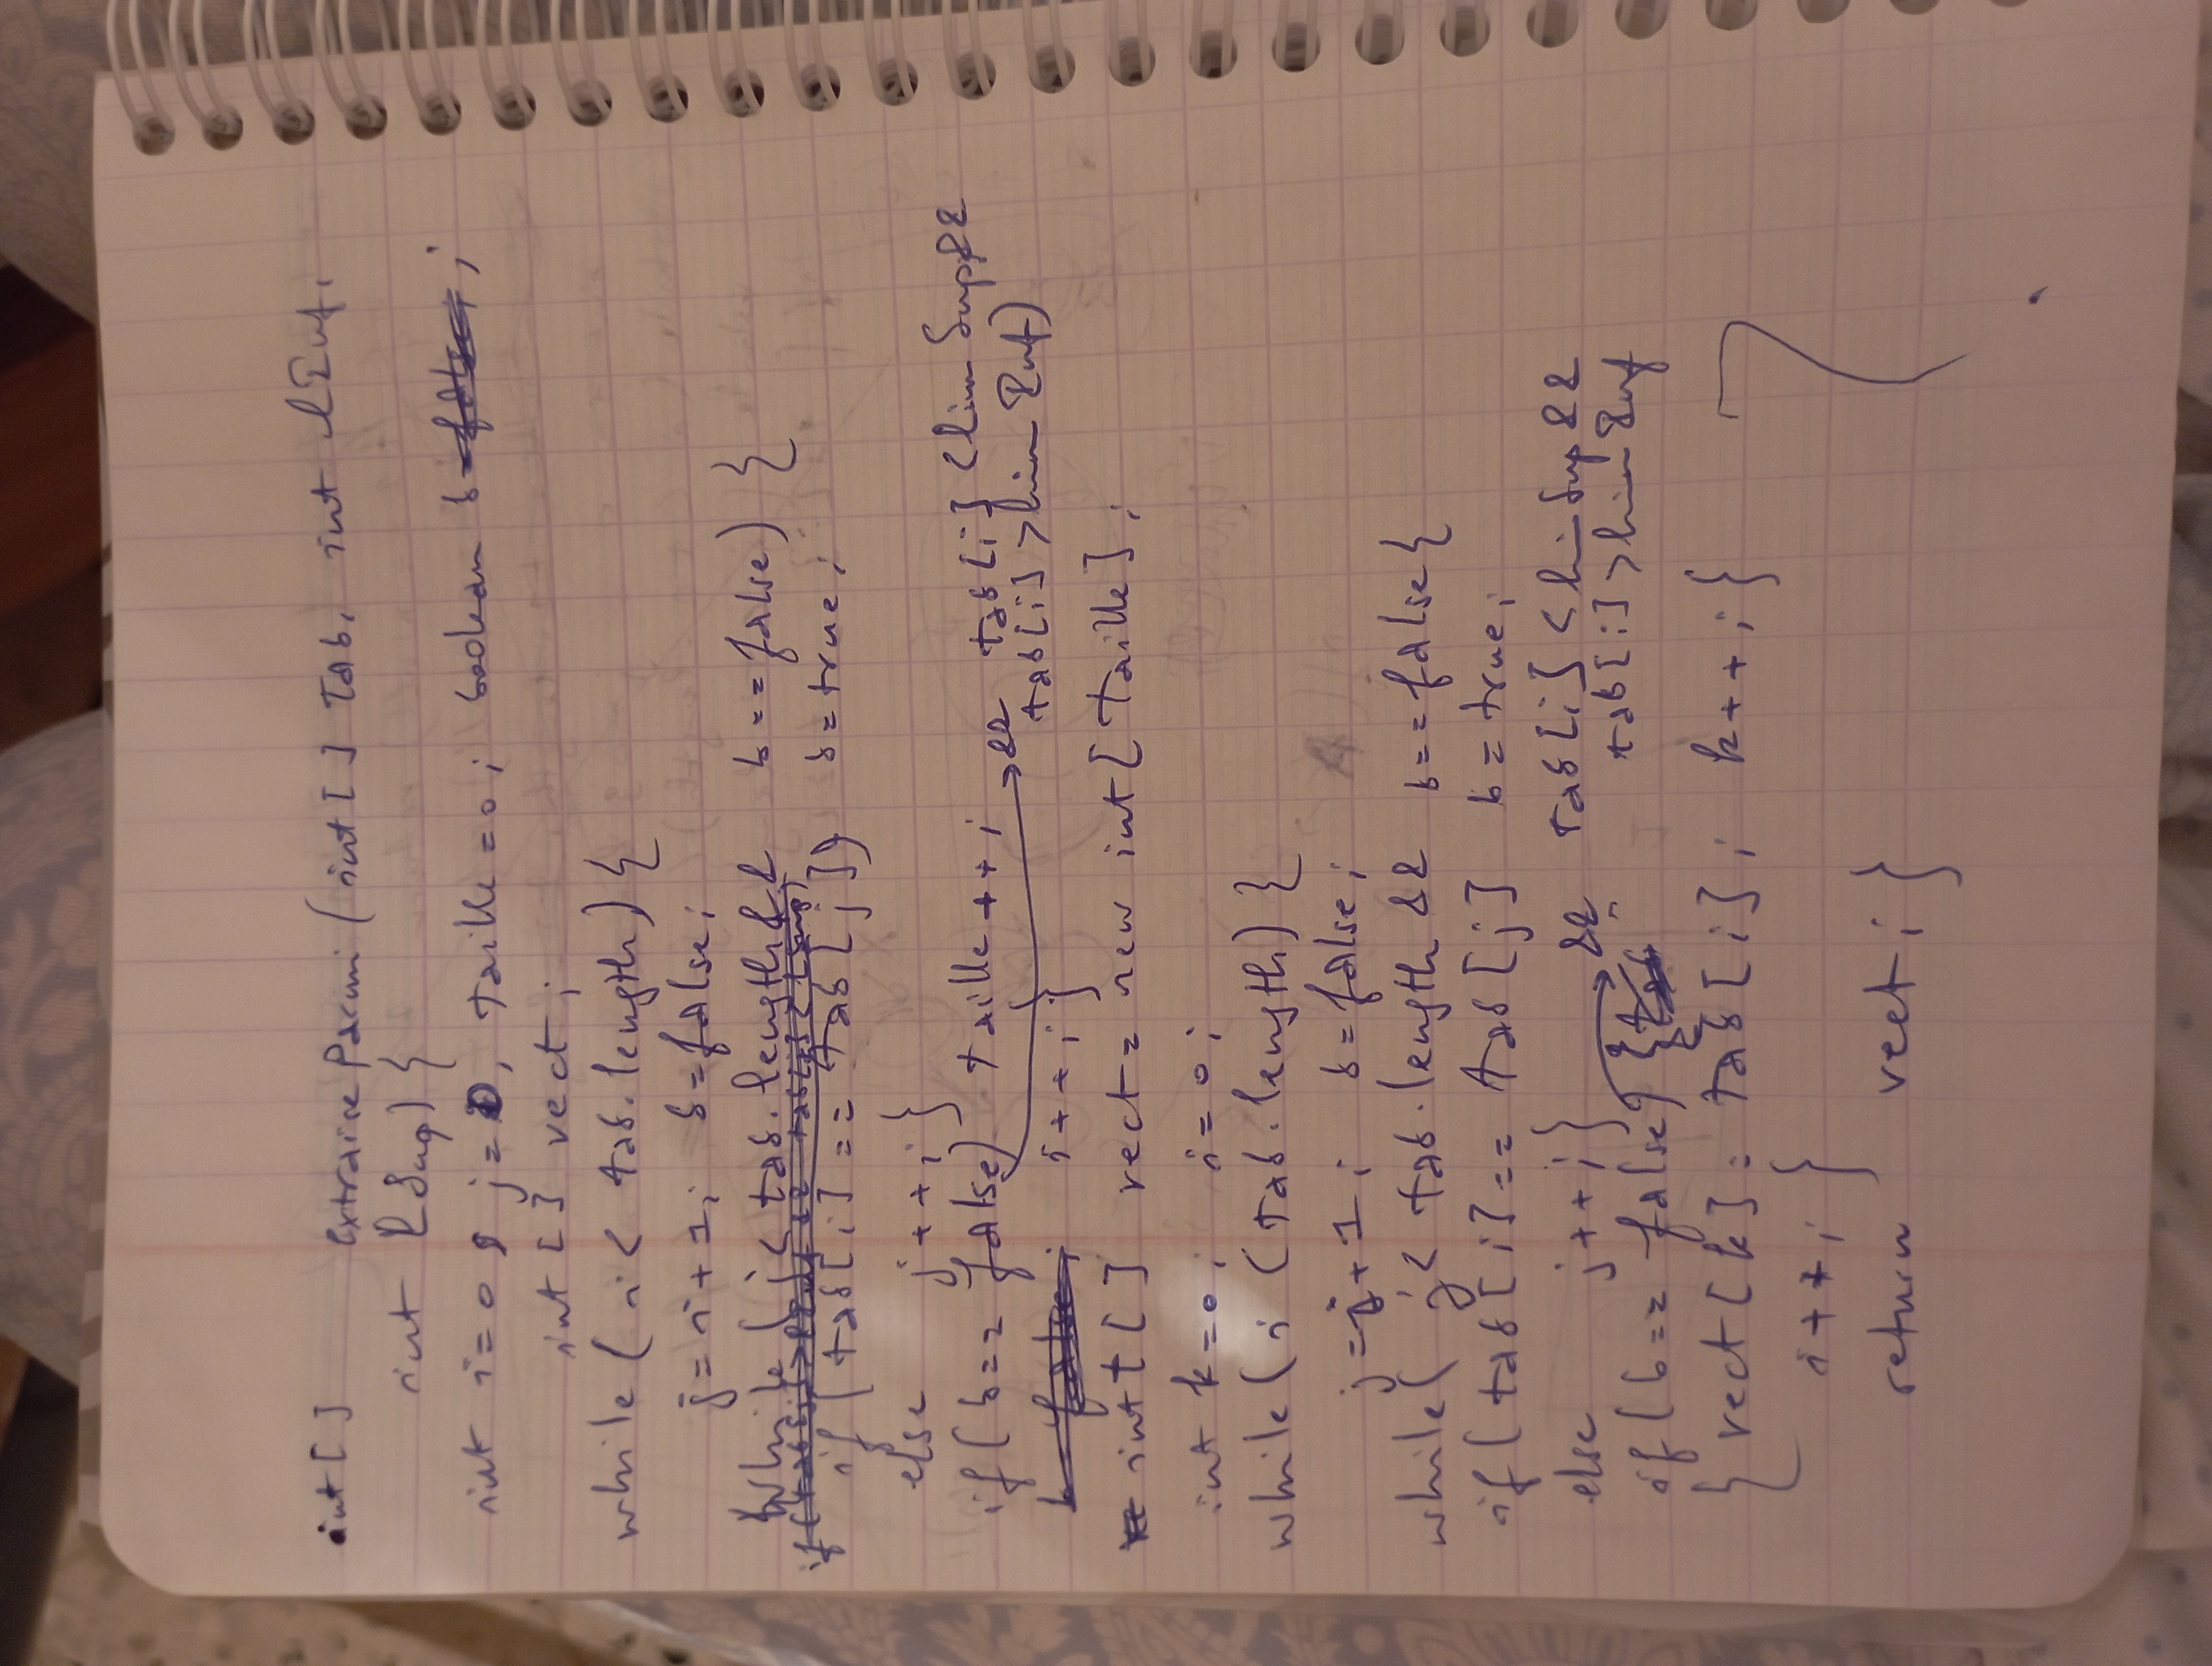 int[] extraireParmi(int[] tab, int lInf,
int lSup){
int i=0, j=0, taille=0; boolean b;
int[] vect;
while(i< tab.length){
j=i+1; b=false;
while(j< tab.length && b==false){
if(tab[i]==tab[j]) b=true;
else j++;}
if(b== false) taille++; && tab[i]<limSup&&
tab[i]>limInf)
i++;}
int[] vect= new int[taille];
int k=0; i=0;
while(i<tab.length){
j=i+1; b=false;
while(j< tab.length && b==false{
if(tab[i]== tab[j] b=true;
else j++;} && tab[i]<limSup &&
if(b== false) { tab[i]>limInf
{ vect[k]= tab[i]; k++;}
i++; }
return vect; }